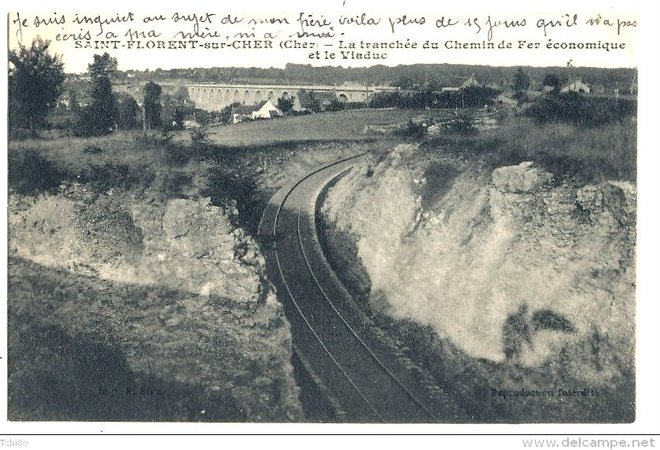 Je suis inquiet au sujet de mon frère, voila plus de 15 jours qu'il n'a pas
écris a ma mère, ni a moi.
SAINT-FLORENT-sur-CHER (Cher) - La tranchée du Chemin de Fer économique
et le Viaduc
Reproduction Interdite
Tchi80
http://www.delcampe.net